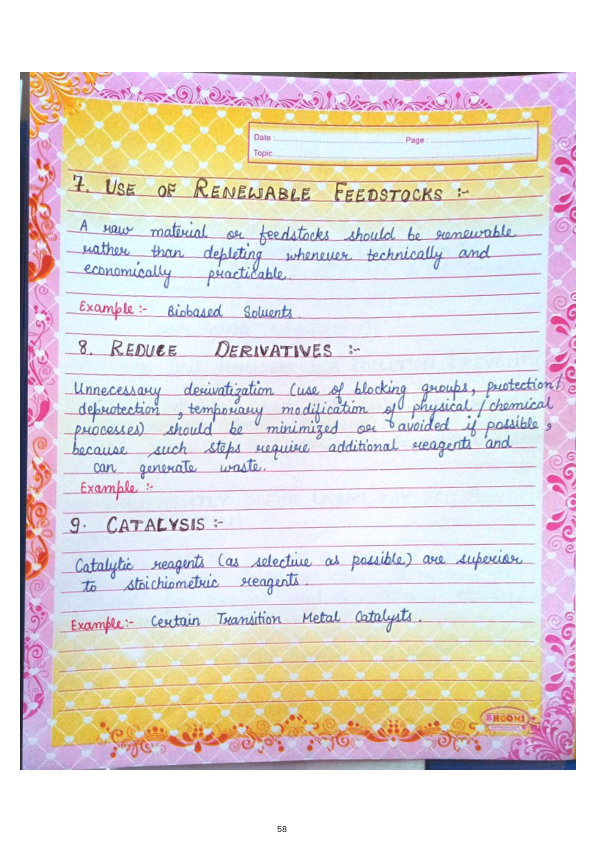 Date :
Page :
Topic
7. USE OF RENEWABLE FEEDSTOCKS :-
A raw material or feedstocks should be renewable
rather than depleting whenever technically and
economically practicable.
Example :- Biobased Solvents.
8. REDUCE DERIVATIVES :-
Unnecessary derivatization (use of blocking groups, protection/
deprotection, temporary modification of physical / chemical
processes) should be minimized or avoided if possible,
because such steps require additional reagents and
can generate waste.
Example :-
9. CATALYSIS :-
Catalytic reagents (as selective as possible) are superior
to stoichiometric reagents.
Example:- Certain Transition Metal Catalysts.
BHOOMI
58